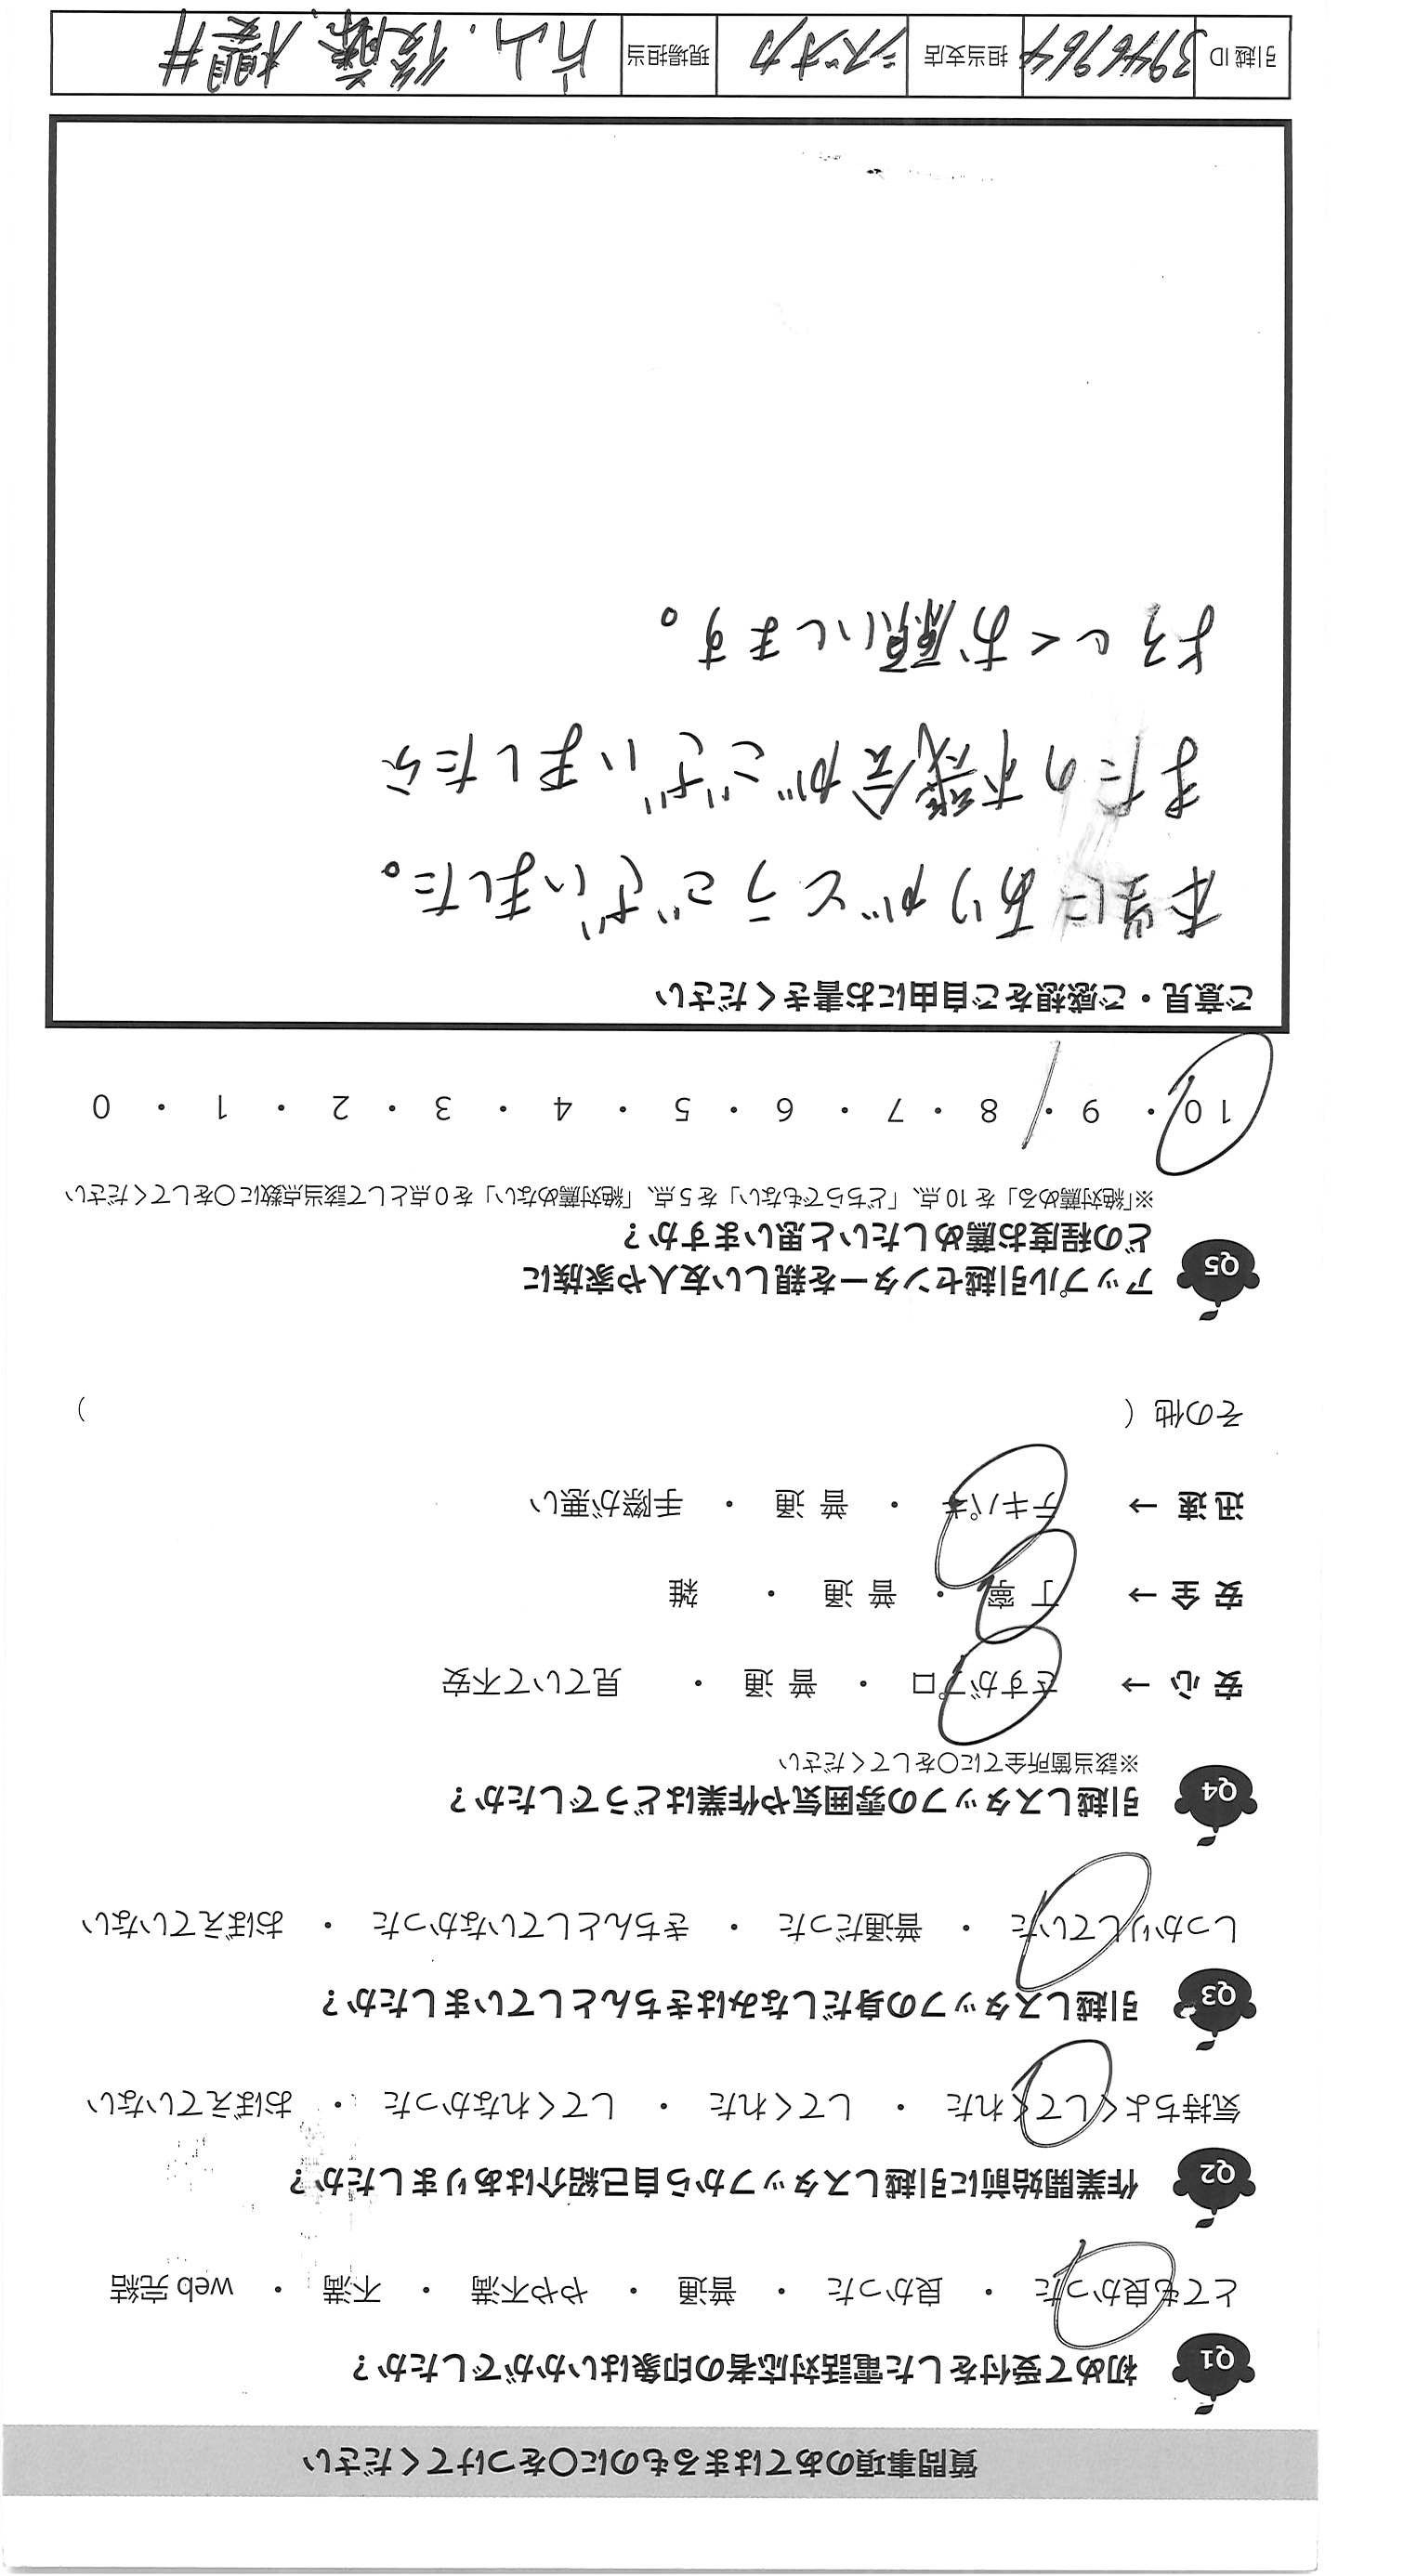 質問事項のあてはまるものに〇をつけてください
Q1 初めて受付をした電話対応者の印象はいかがでしたか？
とても良かった ・ 良かった ・ 普通 ・ やや不満 ・ 不満 ・ web 完結
Q2 作業開始前に引越しスタッフから自己紹介はありましたか？
気持ちよくしてくれた ・ してくれた ・ してくれなかった ・ おぼえていない
Q3 引越しスタッフの身だしなみはきちんとしていましたか？
しっかりしていた ・ 普通だった ・ きちんとしていなかった ・ おぼえていない
Q4 引越しスタッフの雰囲気や作業はどうでしたか？
※該当箇所全てに〇をしてください
安 心 → さすがプロ ・ 普 通 ・ 見ていて不安
安 全 → 丁 寧 ・ 普 通 ・ 雑
迅 速 → テキパキ ・ 普 通 ・ 手際が悪い
その他（ ）
Q5 アップル引越センターを親しい友人や家族に
どの程度お薦めしたいと思いますか？
※「絶対薦める」を 10 点、「どちらでもない」を 5 点、「絶対薦めない」を 0 点として該当点数に〇をしてください
10 ・ 9 ・ 8 ・ 7 ・ 6 ・ 5 ・ 4 ・ 3 ・ 2 ・ 1 ・ 0
ご意見・ご感想をご自由にお書きください
本当にありがとうございました。
またの機会がございましたら
よろしくお願いします。
引越 ID 3946964 担当支店 シズオカ 現場担当 片山、後藤、櫻井